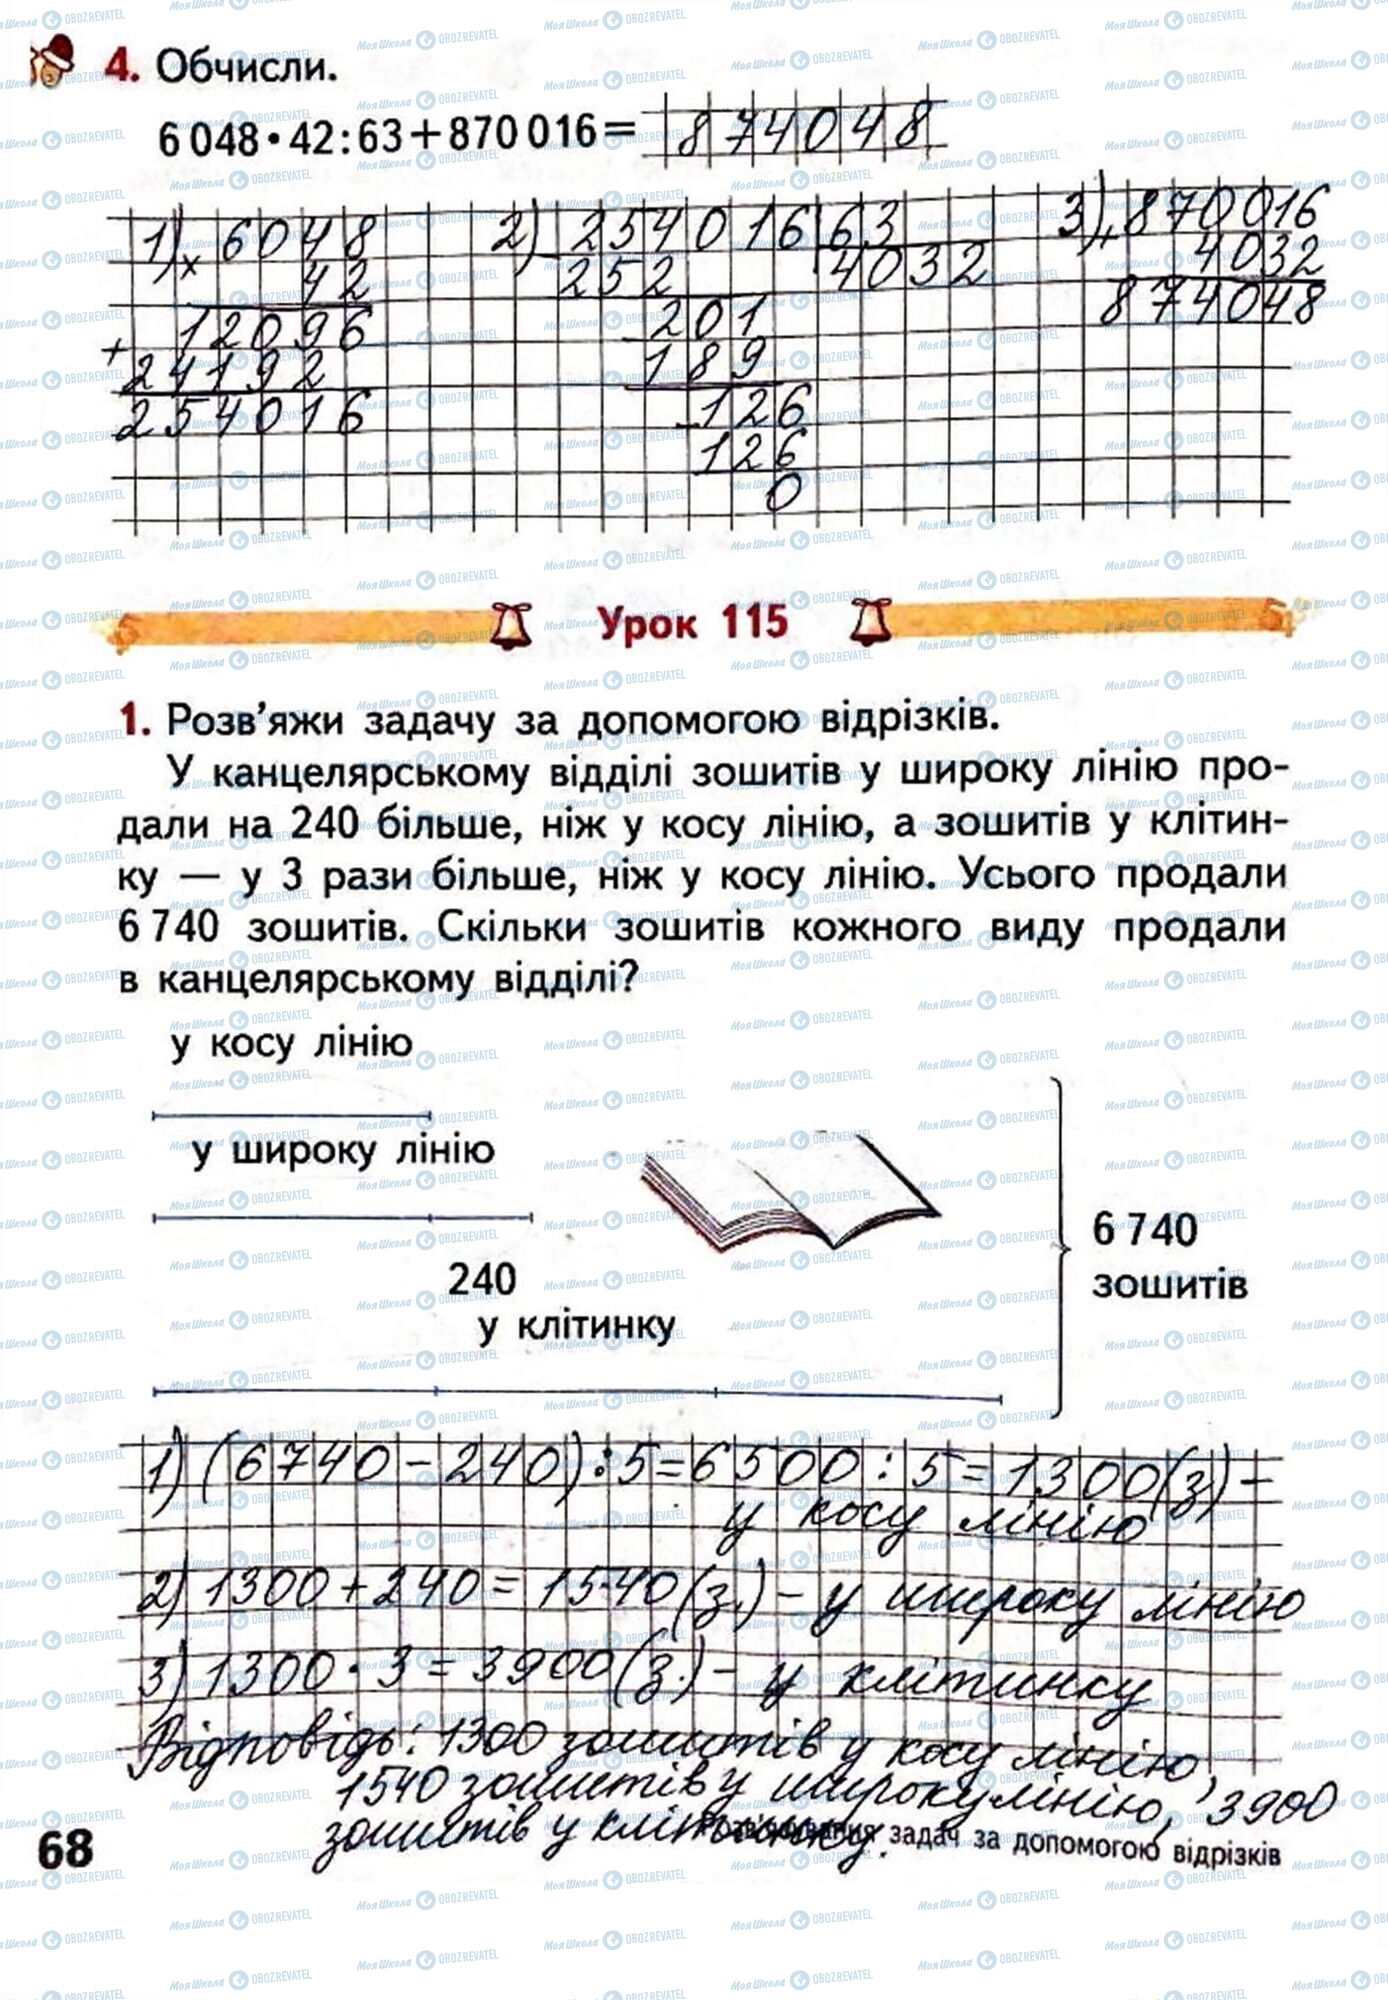 4. Обчисли.
6 048 • 42 : 63 + 870 016 = 874048
1) × 6048
42
+ 12096
24192
254016
2) 254016 | 63
252 | 4032
201
189
126
126
0
3) + 870016
4032
874048
Урок 115
1. Розв’яжи задачу за допомогою відрізків.
У канцелярському відділі зошитів у широку лінію про-
дали на 240 більше, ніж у косу лінію, а зошитів у клітин-
ку — у 3 рази більше, ніж у косу лінію. Усього продали
6 740 зошитів. Скільки зошитів кожного виду продали
в канцелярському відділі?
у косу лінію
у широку лінію
240
у клітинку
6 740
зошитів
1) (6740 – 240) : 5 = 6500 : 5 = 1300 (з) –
у косу лінію
2) 1300 + 240 = 1540 (з.) – у широку лінію
3) 1300 · 3 = 3900 (з.) – у клітинку
Відповідь: 1300 зошитів у косу лінію,
1540 зошитів у широку лінію, 3900
зошитів у клітинку.
68
Розв’язування задач за допомогою відрізків
МояШкола OBOZREVATEL